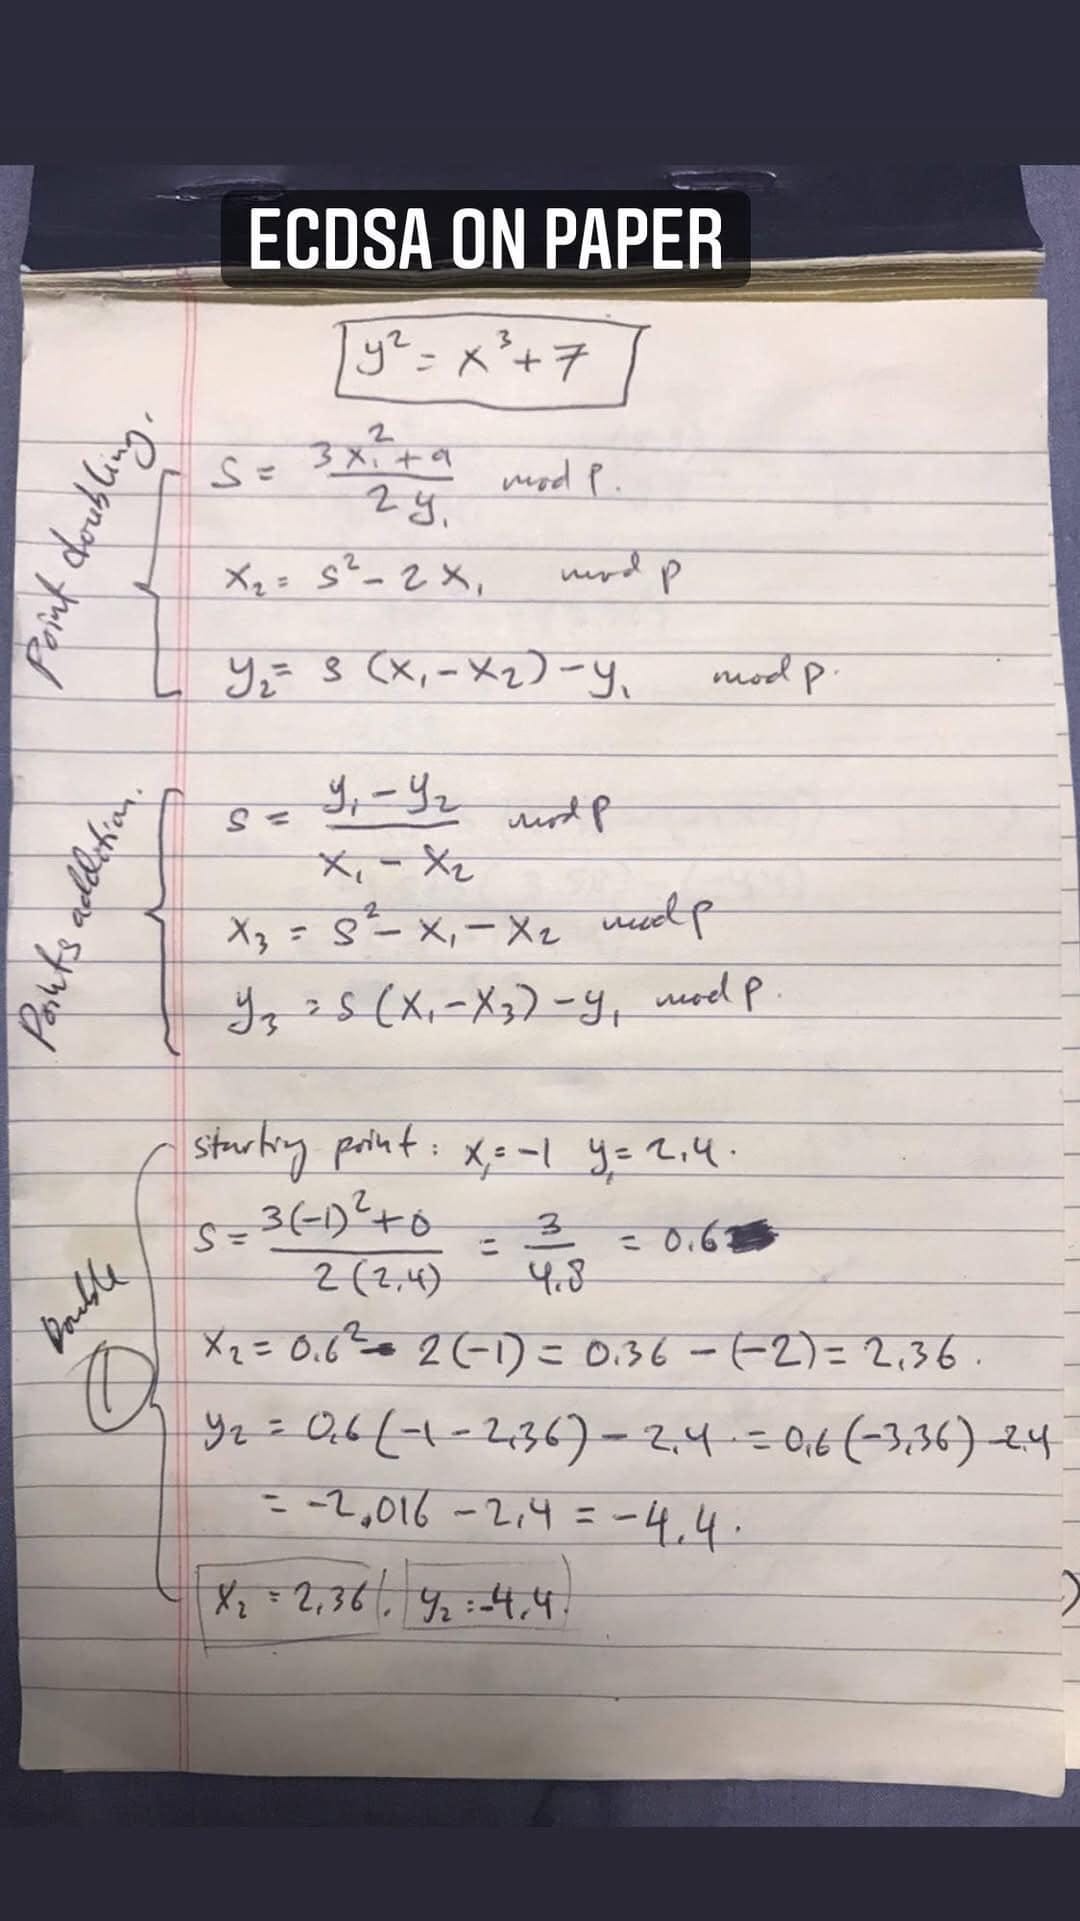 ECDSA ON PAPER
y² = x³ + 7
Point doubling.
S = (3x₁² + a) / (2y₁) mod p.
x₂ = s² - 2x₁ mod p
y₂ = s (x₁ - x₂) - y₁ mod p.
Points addition.
s = (y₁ - y₂) / (x₁ - x₂) mod p
x₃ = s² - x₁ - x₂ mod p
y₃ = s (x₁ - x₃) - y₁ mod p.
Double
1
starting point: x₁ = -1 y₁ = 2,4.
S = (3(-1)² + 0) / (2(2,4)) = 3 / 4.8 = 0.6
x₂ = 0.6² - 2(-1) = 0.36 - (-2) = 2,36.
y₂ = 0,6 (-1 - 2,36) - 2,4 = 0,6 (-3,36) - 2.4
= -2,016 - 2,4 = -4,4.
x₂ = 2,36. y₂ = -4,4.